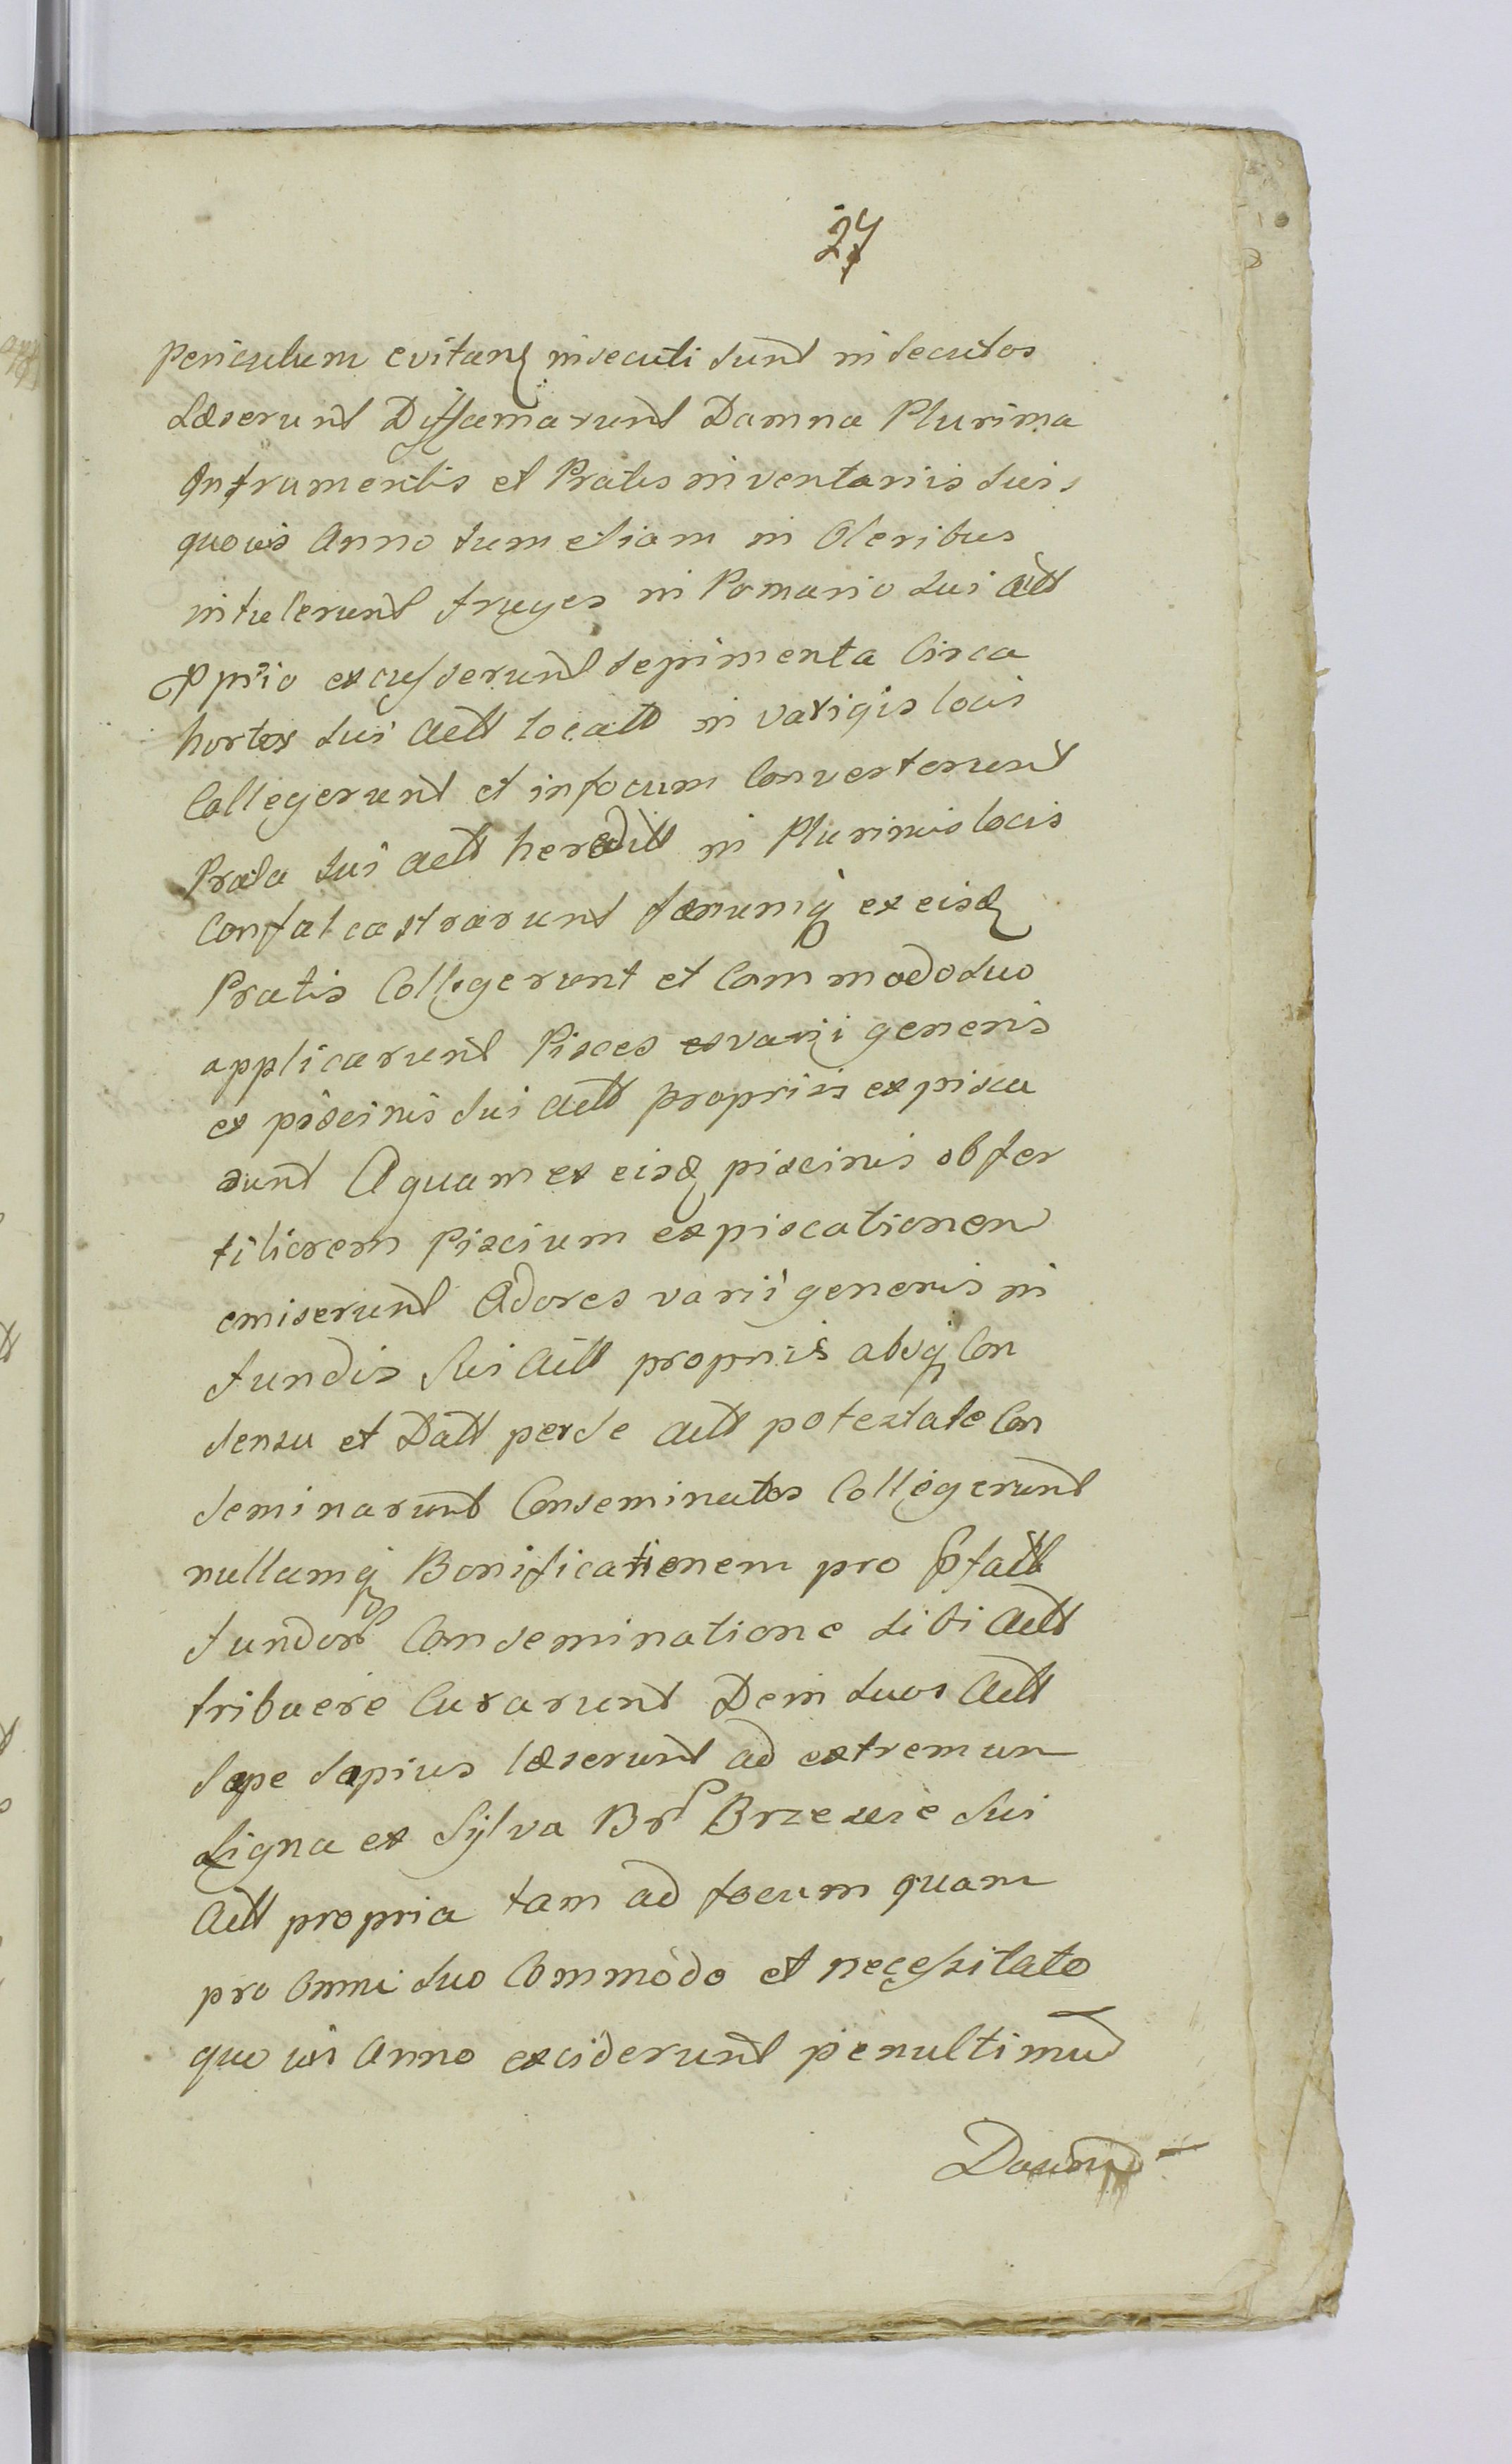 27
periculum evitanq insecuti sunt insecutos
Læserunt Diffamarunt Damna Plurima
In frumentis et Pratis inventariis suis
quovis Anno tum etiam in Oleribus
intulerunt fruges in Pomario sui Actt
Pprio excusserunt sepimenta Circa
hortos sui Actt locatt in varigis locis
Collegerunt et in focum Converterunt
Prata sui Actt hereditt in Plurimis locis
Confalcastrarunt fænumq ex eisq
Pratis Collegerunt et Commodo suo
applicarunt Pisces varii generis
ex piscinis sui Actt propriis expisca
sunt Aquam ex eisq piscinis ob fer
tiliorem Piscium expiscationem
emiserunt Adores varii generis in
fundis sui Actt propriis absq Con
sensu et Datt per se Actt potestate Con
seminarunt Conseminatos Collegerunt
nullamq Bonificationem pro Pfatt
fundor Conseminatione sibi Actt
tribuere Curarunt Dein suos Actt
sæpe sæpius læserunt ad extremum
Ligna ex Sylva Br Brzezie sui
Actt propria tam ad focum quam
pro Omni suo Commodo et necessitate
quovis Anno exciderunt penultimu